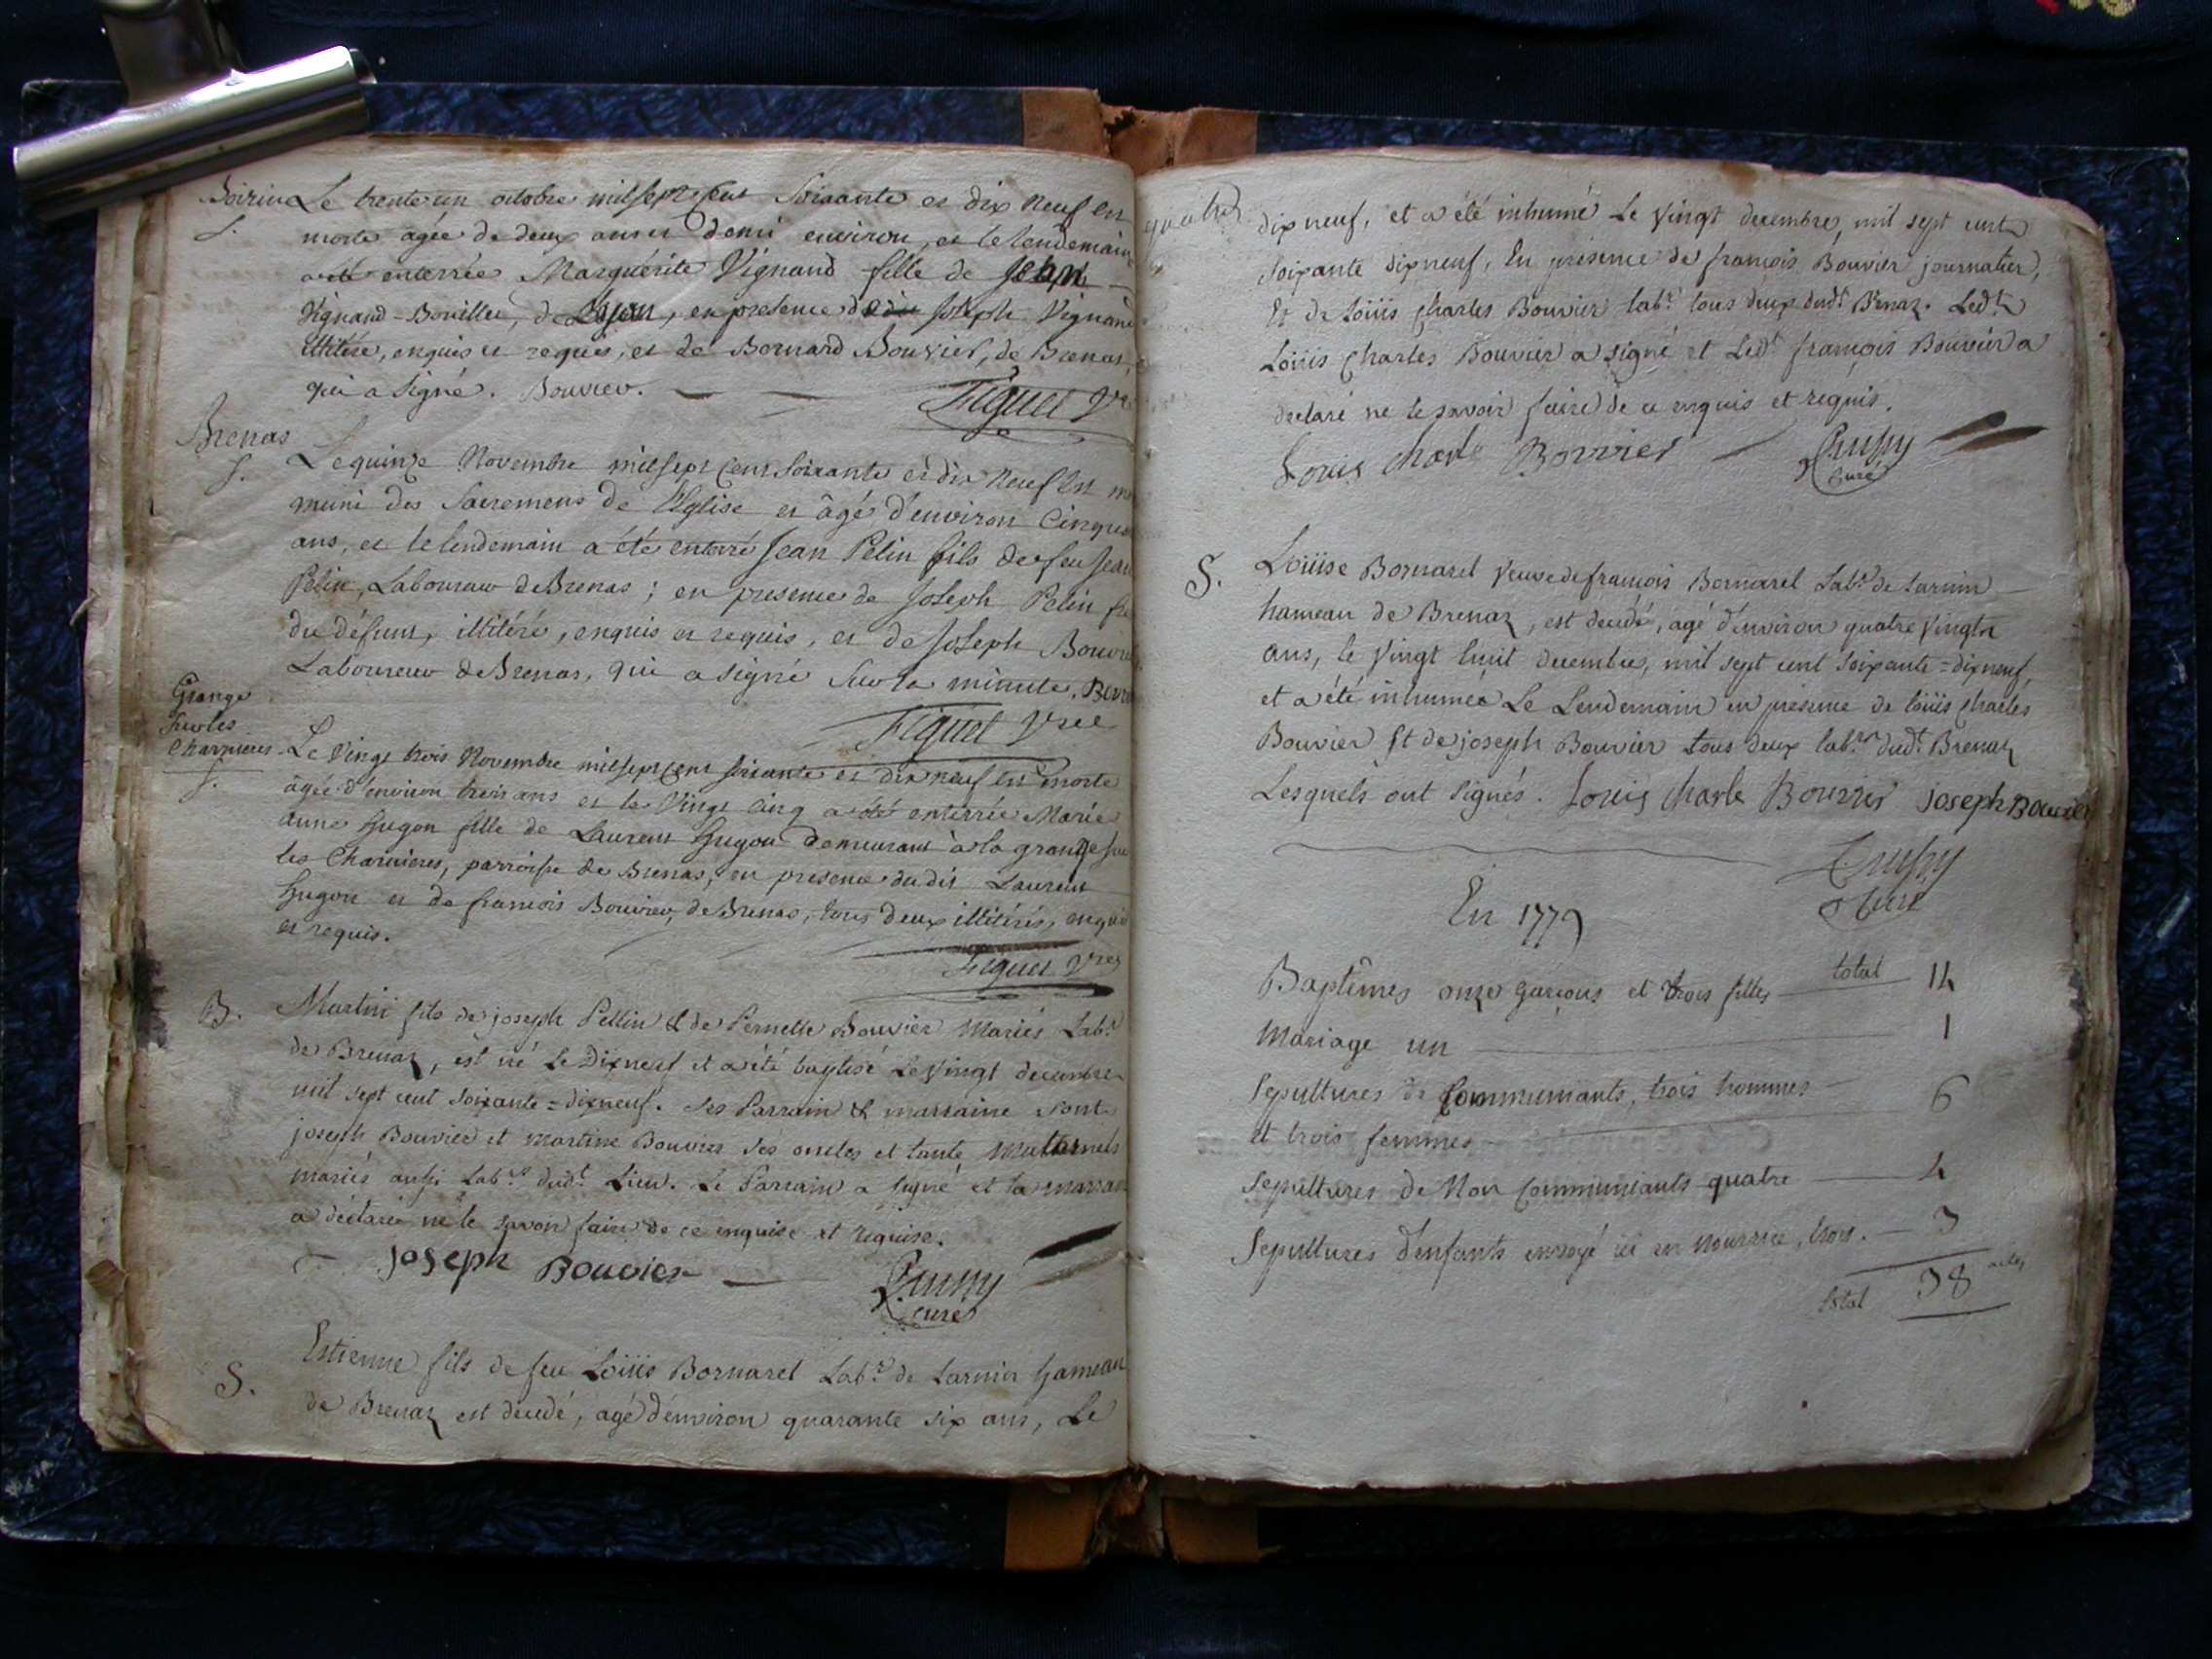 Le trente un octobre mil sept cent soixante et dix neuf est
morte agée de deux ans et demi environ, et le lendemain
a été enterrée Marguerite Vignand fille de Jean
Vignand-Bouillet, de, en presence du dit Joseph Vignand
illitéré, enquis et requis, et de Bernard Bouvier, de Brenas,
qui a signé. Bouvier.
Figuet
Brenas
S.
Le quinze Novembre mil sept cent soixante et dix neuf est
muni des Sacremens de l'Eglise et âgé d'environ
ans, et le lendemain a été enterré Jean Pelin fils de feu Jean
Pelin, Laboureur de Brenas ; en presence de Joseph Pelin
du défunt, illitéré, enquis et requis, et de Joseph Bouvier
Laboureur de Brenas, qui a signé sur la minute.
Figuet
Grange
sur les
Charnieres
S.
Le vingt trois Novembre mil sept cent soixante et dix neuf est morte
âgée d'environ trois ans et le vingt cinq a été enterrée Marie
anne Hugon fille de Laurent Hugon demeurant à la grange sur
les Charnieres, parroisse de Brenas, en presence du dit Laurent
Hugon et de francois Bouvier, de Brenas, tous deux illitérés, enquis
et requis.
Figuet
B.
Martin fils de joseph Pellin & de Pernette Bouvier Mariés Labrs
de Brenaz, est né Le Dixneuf et a été baptisé Le vingt decembre
mil sept cent soixante=dixneuf. ses Parrain & marraine sont
joseph Bouvier et martine Bouvier ses oncles et tante Maternels
mariés aussi Labrs dudt Lieu. Le Parrain a signé et la marraine
a déclaré ne le savoir faire de ce enquise et requise.
joseph Bouvier
curé
S.
Estienne fils de feu Loüis Bornarel Labr de Larnin hameau
de Brenaz est decedé, agé d'environ quarante six ans, Le
dixneuf, et a été inhumé Le vingt decembre, mil sept cent
soixante dixneuf, En présence de françois Bouvier journalier,
Et de Loüis Charles Bouvier labr tous deux dudt Brenaz. Ledt
Loüis Charles Bouvier a signé et Ledt françois Bouvier a
declaré ne le savoir faire de ce enquis et requis.
Louis Charle Bouvier
curé
S.
Loüise Bornarel veuve de françois Bornarel Labr de Larnin
hameau de Brenaz, est decedé, agé d'environ quatre vingt
ans, le vingt huit decembre, mil sept cent soixante=dixneuf,
et a été inhumée Le Lendemain en présence de Loüis Charles
Bouvier Et de joseph Bouvier tous deux labrs dudt Brenaz
Lesquels ont signés. Louis Charle Bouvier joseph Bouvier
Curé
En 1779
Baptêmes onze garçons et trois filles total 14
Mariage un 1
Sepultures de Communiants, trois hommes
et trois femmes 6
Sepultures de Non Communiants quatre 4
Sepultures d'enfants envoyé ici en nourrice, trois. 3
total 38 actes